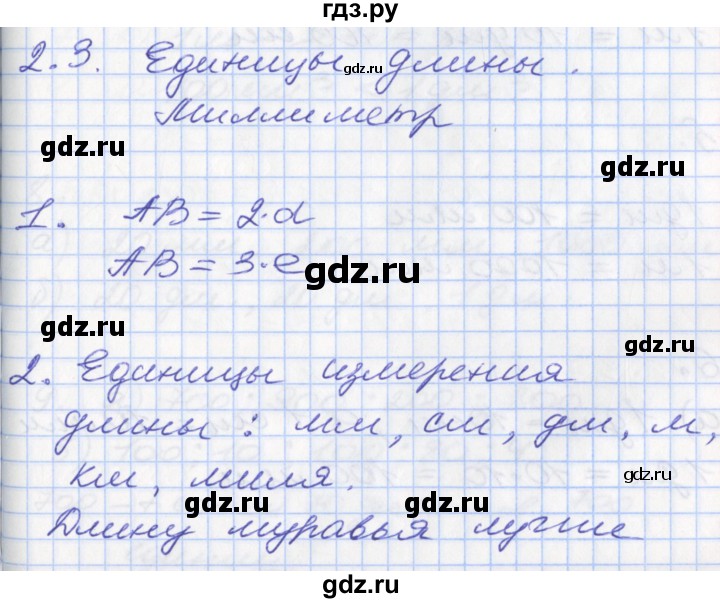 гдз.ру
2.3. Единицы длины.
gdz.ru
Миллиметр
gdz.ru
gdz.ru
1. AB = 2·d
AB = 3·e
gdz.ru
gdz.ru
gdz.ru
2. Единицы измерения
длины: мм, см, дм, м,
км, миля.
gdz.ru
gdz.ru
gdz.ru
Длину муравья лучше
гдз.ру